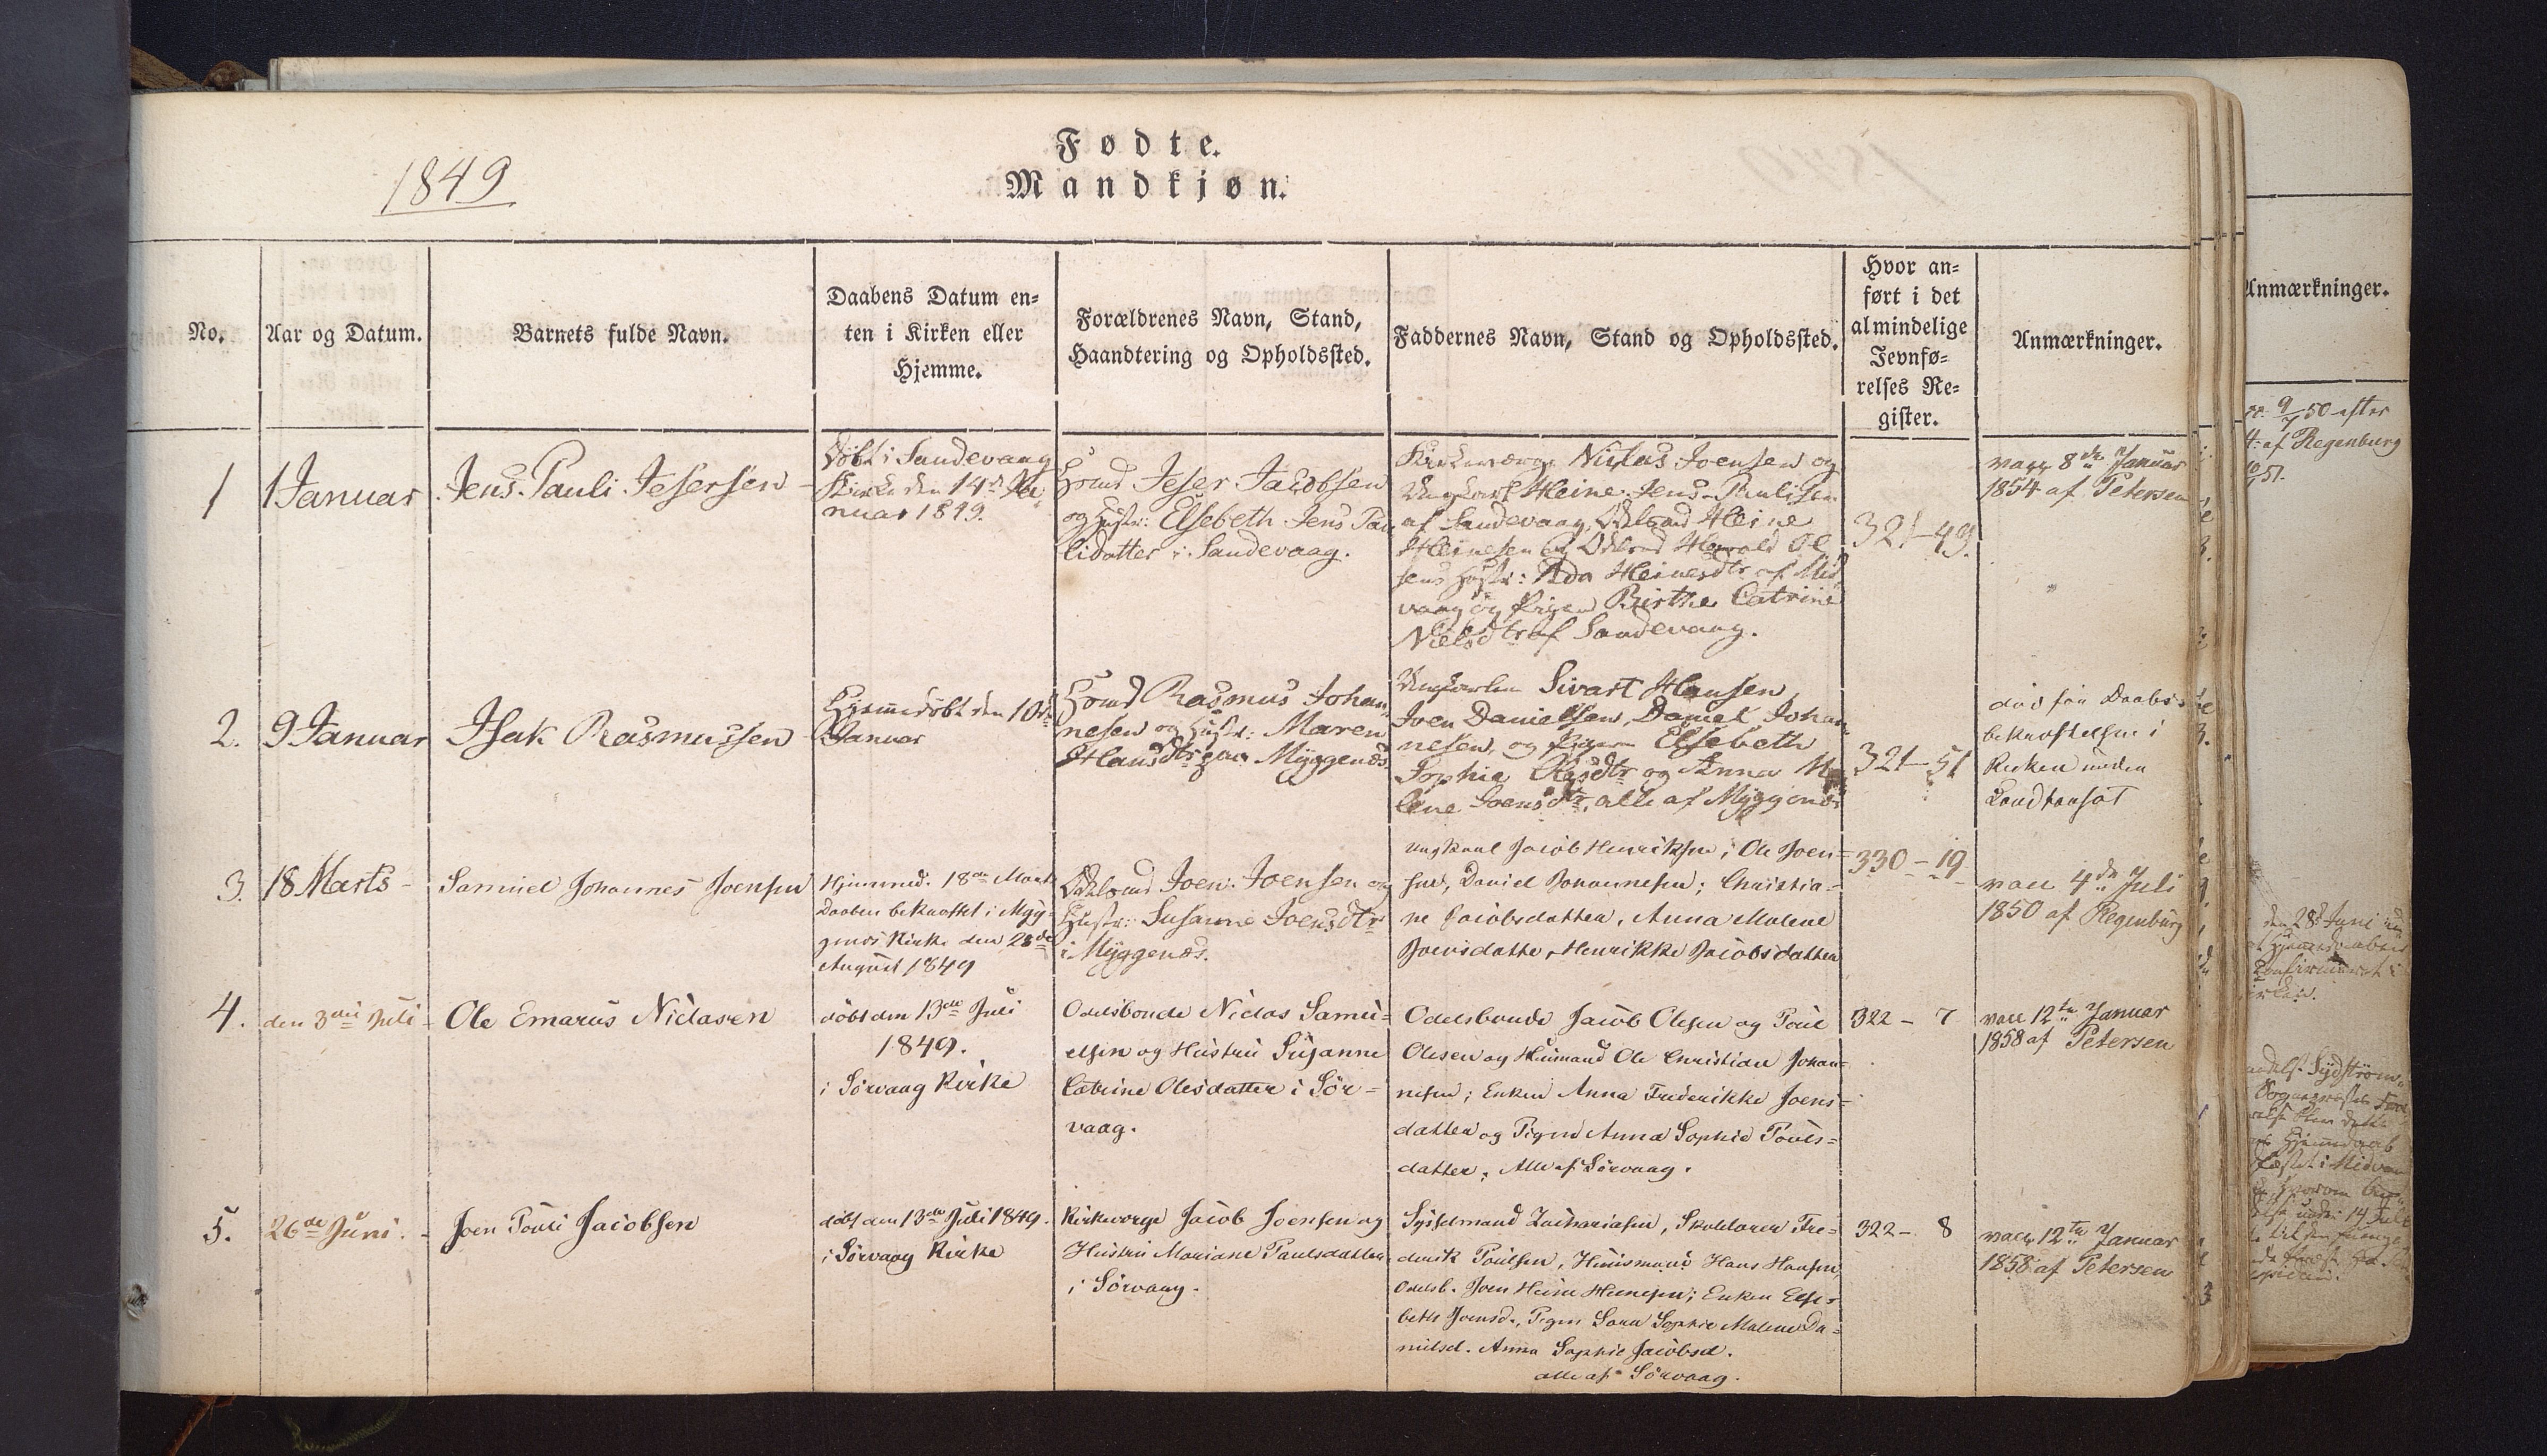 1849
Fødte.
Mandkjøn.
No.
Aar og Datum.
Barnets fulde Navn.
Daabens Datum en=
ten i Kirken eller
Hjemme.
Forældrenes Navn, Stand,
Haandtering og Opholdssted.
Faddernes Navn, Stand og Opholdssted.
Hvor an=
ført i det
almindelige
Jevnfø=
relses Re=
gister.
Anmærkninger.
1
1 Januar
Jens Pauli Jesersen
Döbt i Sandevaag
Kirke den 14de Ja
nuar 1849.
Huusmd Jeser Jacobsen
og Hustr: Elsebeth Jens Pau
lidatter i Sandevaag.
Kirkeværge Niclas Joensen og
Ungkarl Heine Jens-Paulisen
af Sandevaag, Odelsbd Heine
Heinesen og Odelsbd Harald Ol
sens Hustr: Ada Heinesdtr af Mid
vaag og Pigen Birthe Catrine
Nielsdtr af Sandevaag.
321-49.
vacc 8de Januar
1854 af Petersen
2.
9 Januar
Isak Rasmussen
Hjemmedöbt den 10de
Januar
Huusmd Rasmus Johan
nesen og Hustr: Maren
Hansdtr paa Myggenæs.
Ungkarlen Sivart Hansen,
Joen Danielsen, Daniel Johan
nesen, og Pigen Elsebeth
Sophia Olesdtr og Anna Ma
lene Joensdtr, alle af Myggenæs
321-51
död før Daabs=
bekræftelsen i
Kirken
3.
18 Marts -
Samuel Johannes Joensen
Hjemmed. 18de Marts
Daaben bekræftet i Myg=
genæs Kirke den 28de
August 1849
Odelsbd Joen Joensen og
Hustr: Susanne Joensdtr
i Myggenæs.
Ungkarl Jacob Henriksen; Ole Joen=
sen, Daniel Johannesen; Christia=
ne Jacobsdatter, Anna Malene
Joensdatter, Henrikke Jacobsdatter
330-19
vacc 4de Juli
1850 af Regenburg
4.
den 3die Juli -
Ole Emarus Niclasen
döbt den 13de Juli
1849.
i Sörvaag Kirke
Odelsbonde Niclas Samu=
elsen og Hustru Susanne
Catrine Olesdatter i Sör=
vaag.
Odelsbonde Jacob Olesen og Poul
Olesen og Huusmand Ole Christian Johan=
nesen; Enken Anna Frederikke Joens=
datter og Pigen Anna Sophie Pouls=
datter; Alle af Sörvaag.
322 - 7
vacc 12te Januar
1858 af Petersen
5.
26de Juni. -
Joen Pouli Jacobsen
döbt den 13de Juli 1849.
i Sörvaag Kirke
Kirkeværge Jacob Joensen og
Hustru Mariane Paulsdatter
i Sörvaag.
Sysselmand Zachariasen, Skolelærer Fre=
derik Poulsen, Huusmand Hans Hansen,
Odelsb. Joen Heine Heinesen; Enken Else=
beth Joensd., Pigen Sara Sophie Malene Da=
nielsd. Anna Sophie Jacobsd.
alle af Sörvaag.
322 - 8
vacc 12te Januar
1858 af Petersen
Anmærkninger.
9/7 50 efter
af Regenburg
51.
den 28de Juni